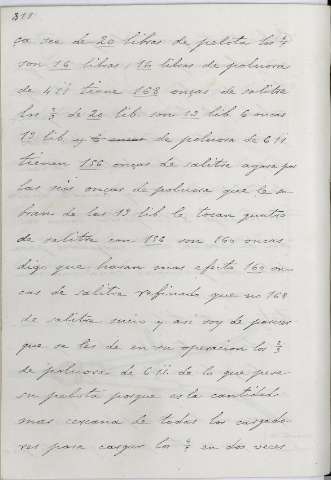 318
ça ser de 20 libras de pelota los 4/5
son 16 libras, 16 libras de polvora
de 4 11 tiene 168 onças de salitre
los 2/3 de 20 lib son 13 lib 6 onças
13 lib y de polvora de 6 11
tienen 156 onças de salitre agora por
las seis onças de polvora que le so-
bran de las 13 lib le tocan quatro
de salitre con 156 son 160 onças
digo que haran mas efeto 160 on-
ças de salitre refinado que no 168
de salitre y asi soy de parecer
que se les de en su operacion los 2/3
de polvora de 6 11 de lo que pesa
su pelota porque es la cantidad
mas cercana de todos los cargado-
res para cargar los en dos veces